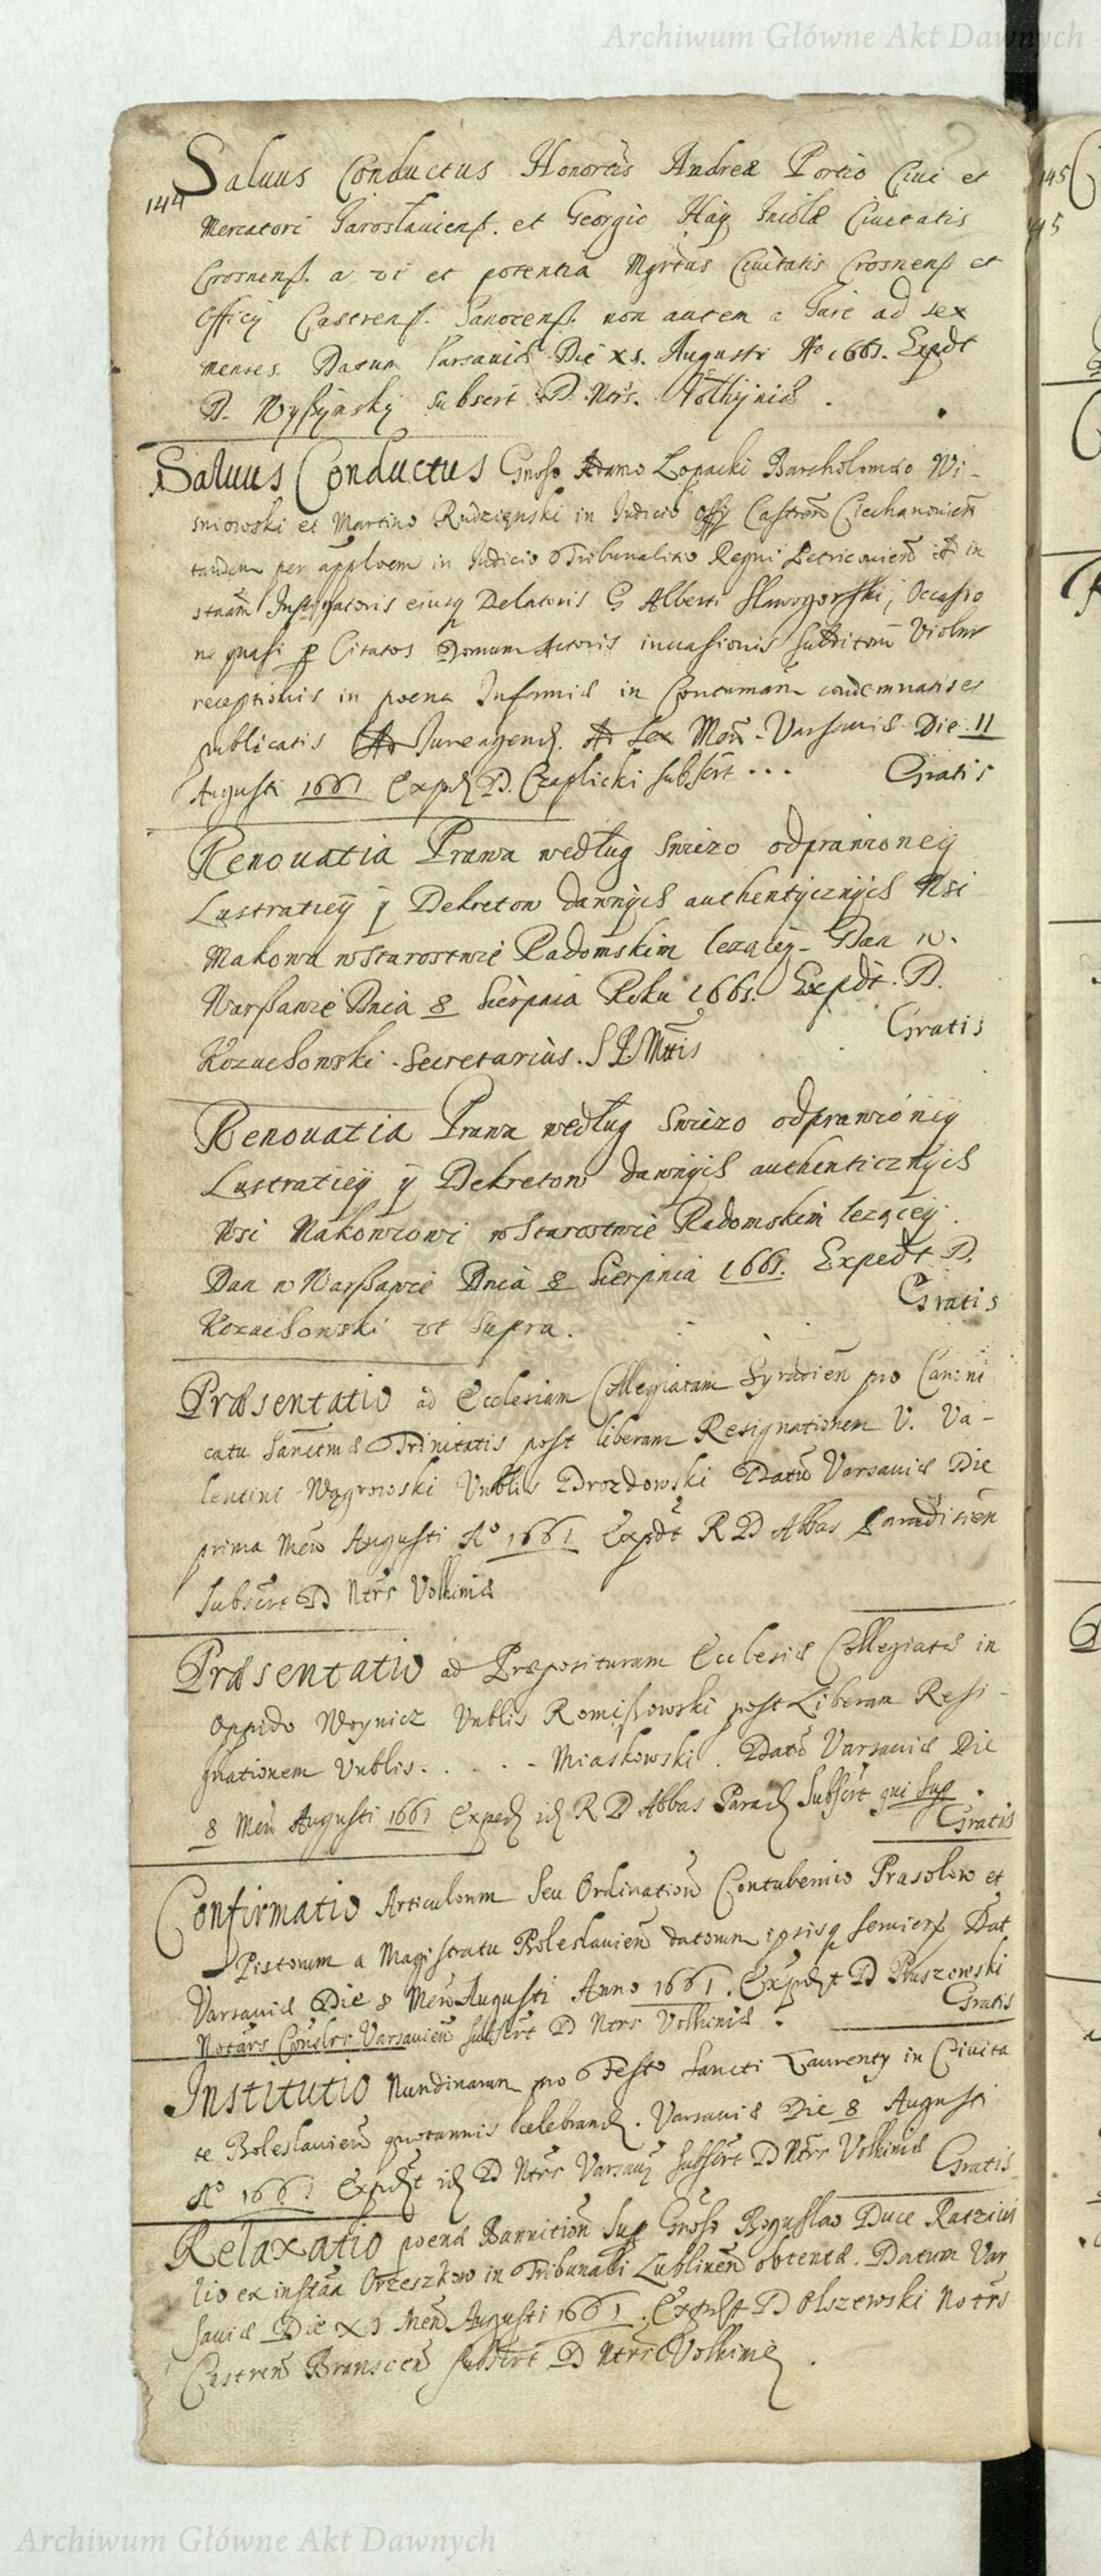 Archiwum Główne Akt Dawnych
144
Saluus Conductus Honortis Andreæ Portio Ciui et
Mercatori Jaroslauiens. et Georgio Hay Incolæ Ciuitatis
Crosnens. a vi et potentia Mgrtus Ciuitatis Crosnens et
Officij Castrens. Sanocens. non autem a Jure ad sex
menses. Datum Varsauiæ Die XI. Augusti Ao 1661. Expdt
D. Wyszynskij subscrt D. Ntrs. Volhÿniæ.
Saluus Conductus Gnoso Adamo Lopacki Bartholomæo Wi-
sniowski et Martino Rudzienski in Judicio Offij Castren Ciechanouien
tandem per apploem in Judicio Tribunalitio Regni Petricouien ad in
stnam Instigatoris eiusq Delatoris G Alberti Slawogorski, Occasio
ne quasi p Citatos Domum Actoris inuasionis Subditorum Violen
receptionis in poena Infamiæ in Contumam condemnatis et
publicatis Ad Jure agend. Ad Sex Men. Varsauiæ Die 11
Augusti 1661 Exped D. Czaplicki subscrt... Gratis
Renouatia Prawa według swiezo odprawioneÿ
Lustratieÿ ÿ Dekretow dawnÿch authentÿcznÿch Wsi
Makowa w Starostwie Radomskim lezącÿ. Dan w.
Warszawie Dnia 8 Sierpnia Roku 1661. Expdt. D.
Gratis
Kozuchowski. Secretarius. S R Mttis
Renouatia Prawa według swiezo odprawioniÿ
Lustratieÿ ÿ Dekretow dawnÿch authenticznÿch
Wsi Makowcowi w Starostwie Radomskim lezącey.
Dan w Warszawie Dnia 8 Sierpnia 1661. Expedt D.
Gratis
Kozuchowski vt supra.
Præsentatio ad Ecclesiam Collegiatam Syradien pro Canoni
catu Sanctmæ Trinitatis post liberam Resignationem V. Va-
lentini Wągrowski Vnblis Drozdowski Datu Varsauiæ Die
prima Men Augusti Ao 1661 Expdt R D Abbas Paradisien
Subscrt D Ntrs Volhiniæ
Præsentatio ad Præposituram Ecclesiæ Collegiatæ in
Oppido Woynicz Vnblis Romiszowski post Liberam Resi-
gnationem Vnblis. . . . - Miaskowski. Datu Varsauiæ Die
8 Men Augusti 1661 Exped id R D Abbas Parad Subscrt qui Sup.
Gratis
Confirmatio Articulorum Seu Ordination Contubernio Prasolow et
Pistorum a Magistratu Boleslauien datorum ipsisq seruiens Dat
Varsauiæ Die 8 Men Augusti Anno 1661. Expdt D Pruszewski
Gratis
Notars Conslrs Varsauien subscrt D Ntrs Volhiniæ.
Institutio Nundinarum pro Festo Sancti Laurenty in Ciuita
te Boleslauien quotannis celebrand. Varsauiæ Die 8 Augusti
Ao 1661 Expdt id D Ntrs Varsau subscrt D Ntrs Volhiniæ Gratis
Relaxatio poenæ Bannition Sup Gnoso Boguslao Duce Radziui
lio ex instaa Orzeszkow in Tribunali Lublinen obtentæ. Datum Var
sauiæ Die XI Men Augusti 1661. Expdt D Olszewski Notrs
Castren Branscen subscrt D Ntrs Volhiniæ.
145
45
Archiwum Główne Akt Dawnych